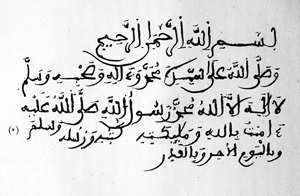 بسم الله الرحمن الرحيم
وصلى الله على سيدنا محمد وءاله وصحبه وسلم
لا اله الا الله محمد رسول الله صلى الله عليه وسلم
ءامنت بالله ومليكته كتبه ورسله
وباليوم الاخر وبالقدر